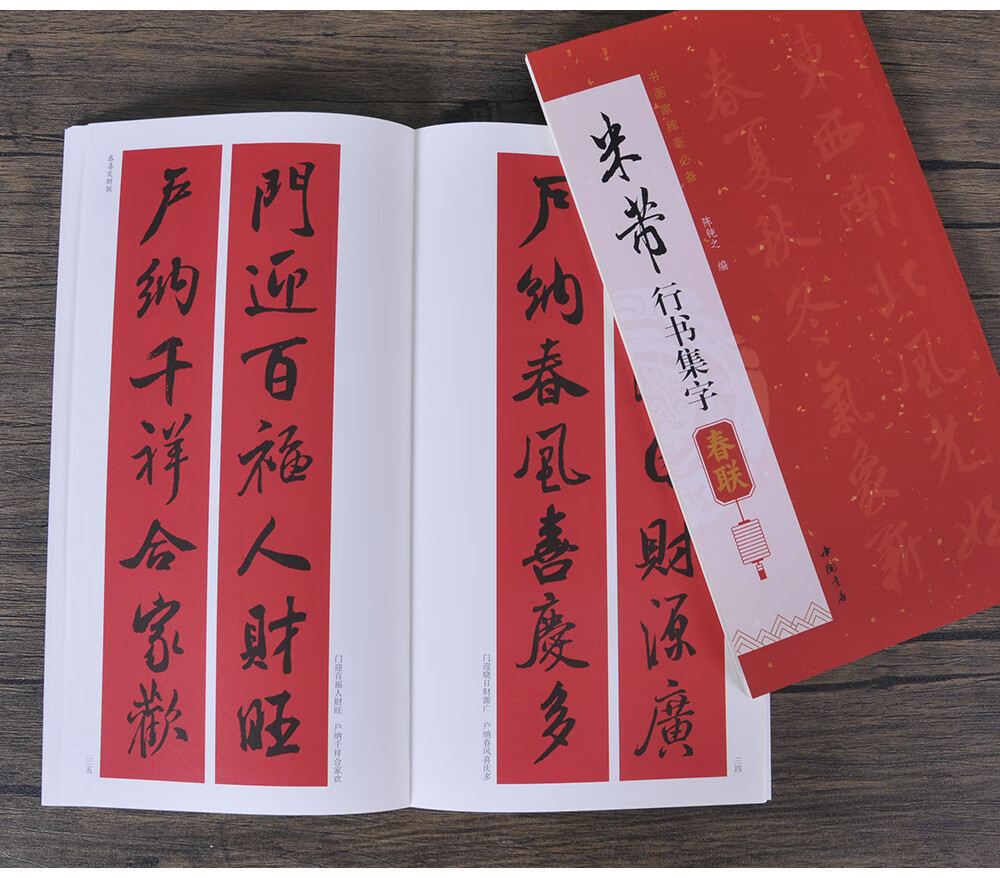 书画家挥毫必备
米芾
行书集字
春联
陈钝之 编
中国书店
東西南北風光好
春夏秋冬氣象新
財源廣
户納春風喜慶多
门迎晓日财源广 户纳春风喜庆多
三四
門迎百福人財旺
户納千祥合家歡
门迎百福人财旺 户纳千祥合家欢
恭喜发财联
三五